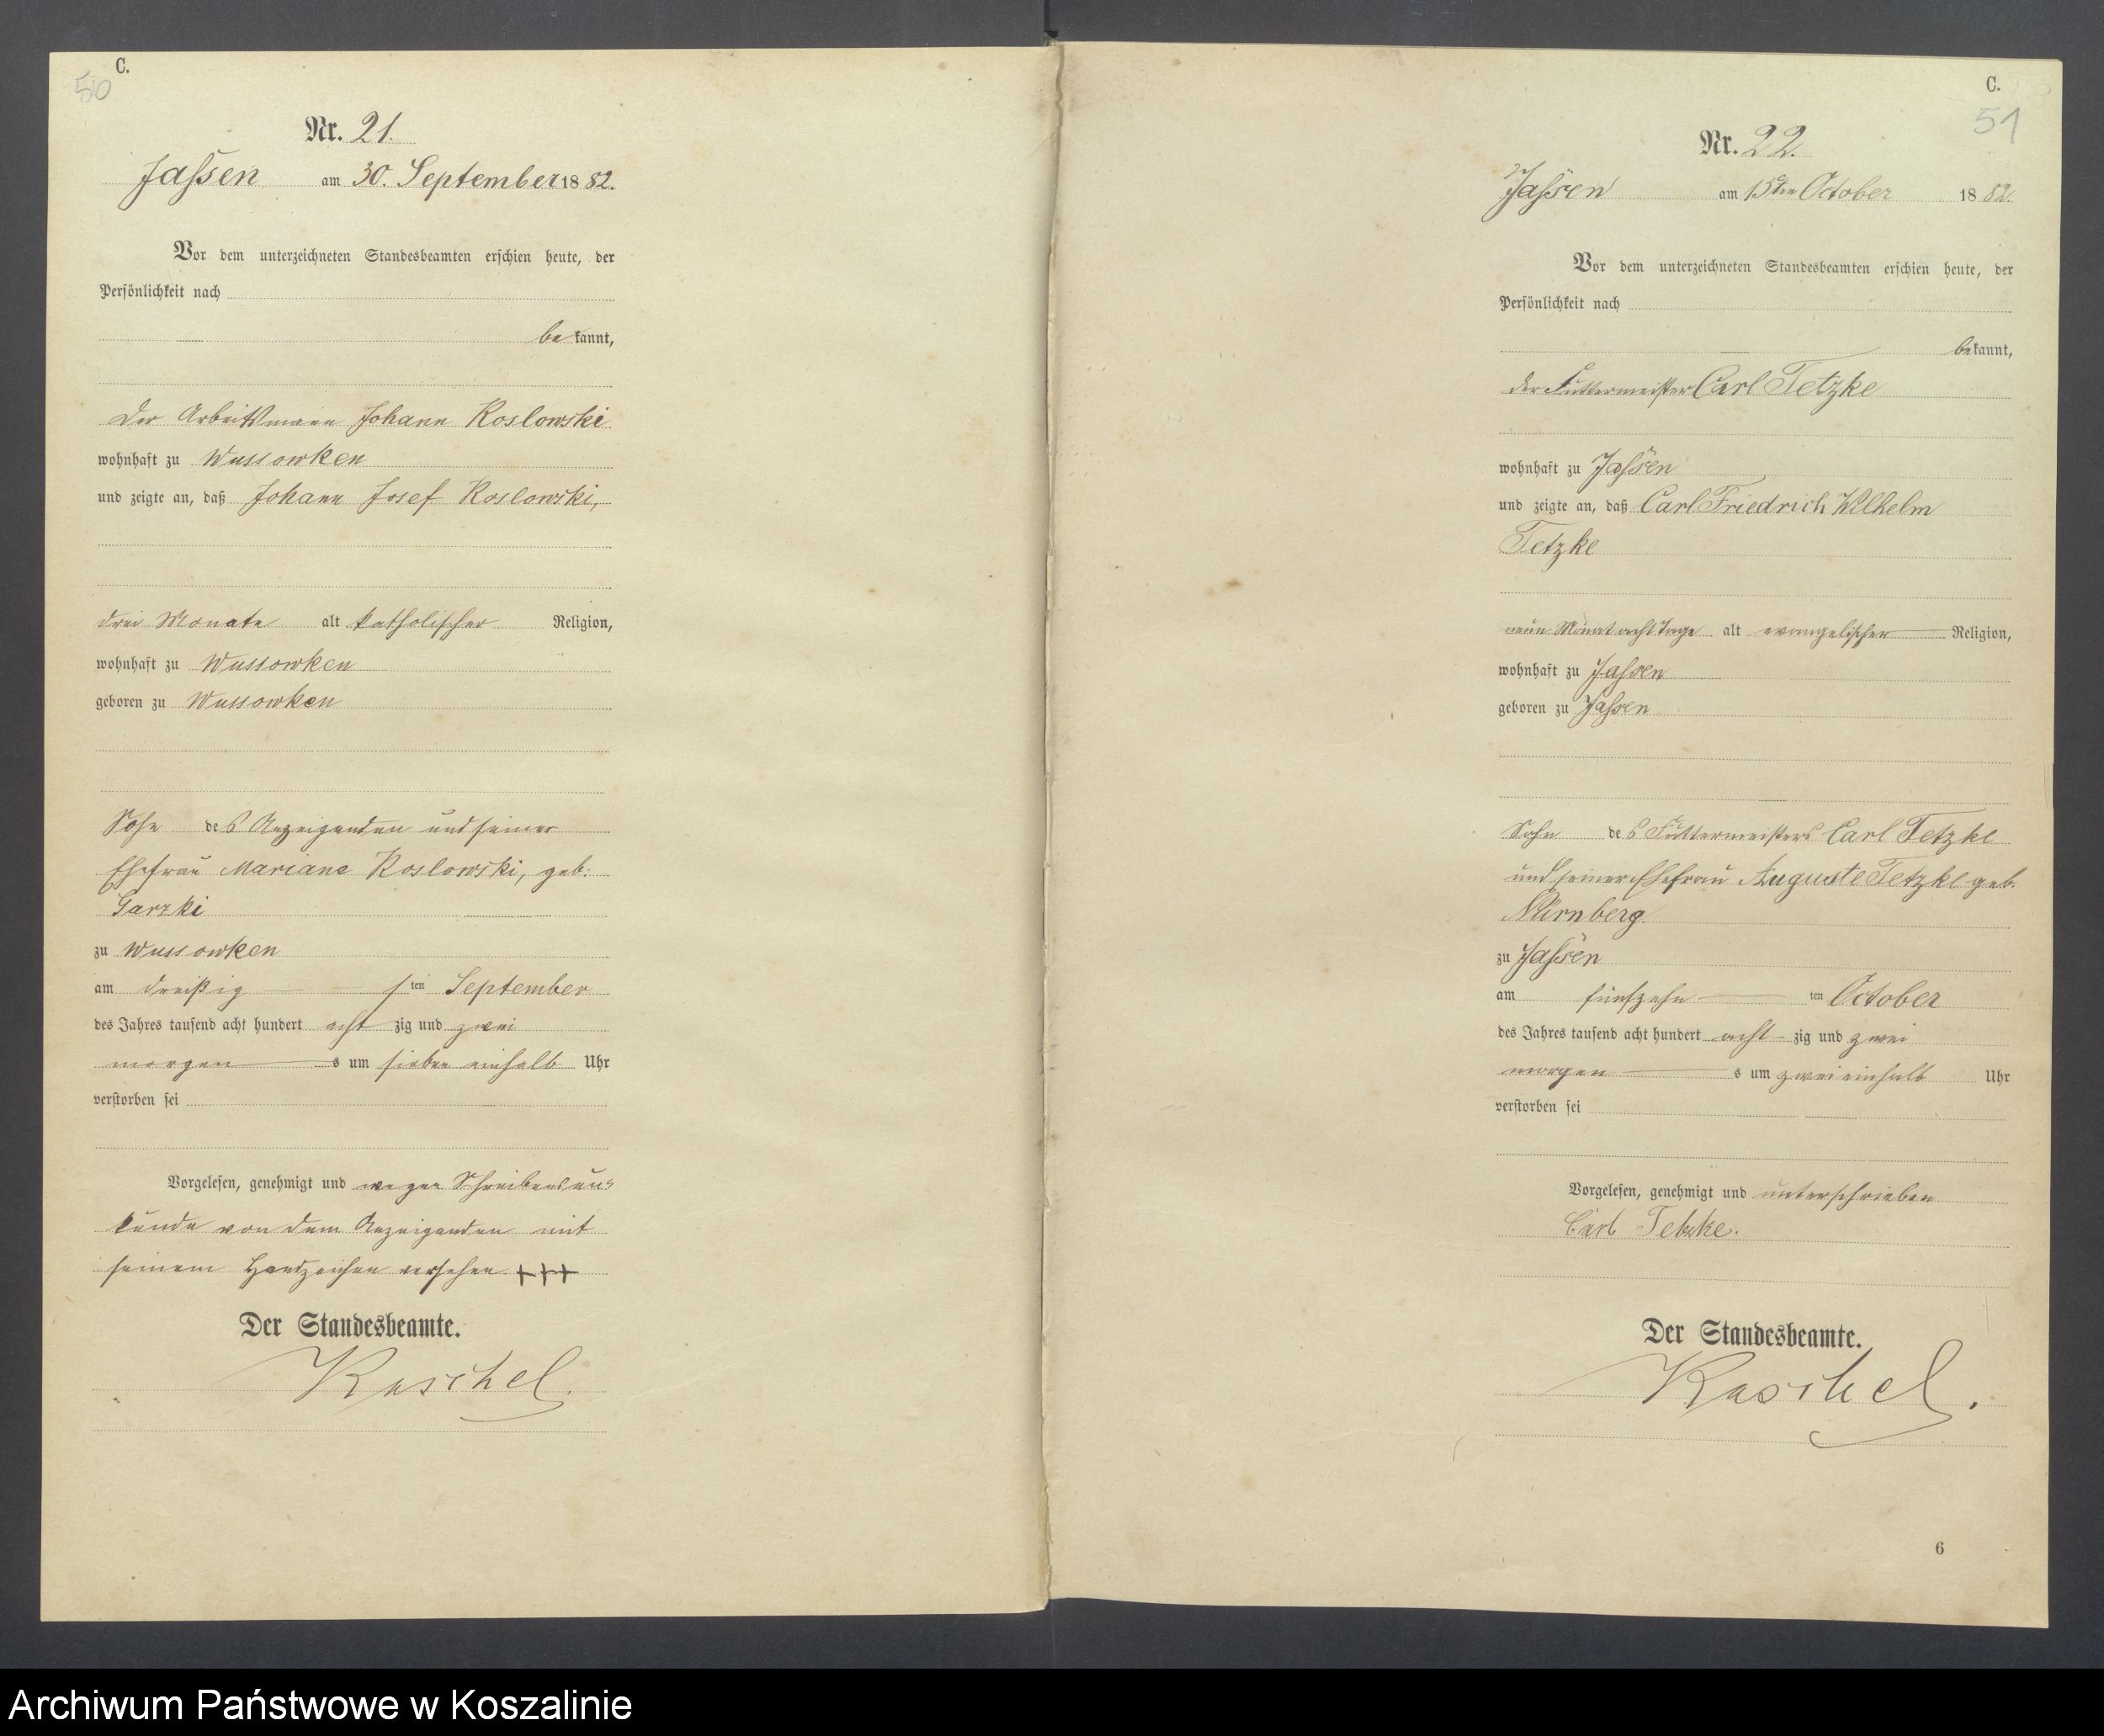 C.
50
Nr. 21.
Jassen am 30. September 1882.
Vor dem unterzeichneten Standesbeamten erschien heute, der
Persönlichkeit nach
bekannt,
der Arbeitsmann Johann Koslowski
wohnhaft zu Wussowken
und zeigte an, daß Johann Josef Koslowski,
drei Monate alt katholischer Religion,
wohnhaft zu Wussowken
geboren zu Wussowken
Sohn des Anzeigenden und seiner
Ehefrau Mariane Koslowski, geb:
Garzki
zu Wussowken
am dreißig sten September
des Jahres tausend acht hundert acht zig und zwei
morgen s um sieben einhalb Uhr
verstorben sei
Vorgelesen, genehmigt und wegen Schreibensun-
kunde von dem Anzeigenden mit
seinem Handzeichen versehen +++
Der Standesbeamte.
Kaschel.
C.
51
Nr. 22.
Jassen am 15ten October 1882.
Vor dem unterzeichneten Standesbeamten erschien heute, der
Persönlichkeit nach
bekannt,
der Futtermeister Carl Tetzke
wohnhaft zu Jassen
und zeigte an, daß Carl Friedrich Wilhelm
Tetzke
neun Monat acht Tage alt evangelischer Religion,
wohnhaft zu Jassen
geboren zu Jassen
Sohn des Futtermeisters Carl Tetzke
und seiner Ehefrau Auguste Tetzke geb.
Nürnberg
zu Jassen
am fünfzehn ten October
des Jahres tausend acht hundert acht zig und zwei
morgen s um zwei einhalb Uhr
verstorben sei
Vorgelesen, genehmigt und unterschrieben
Carl Tetzke.
Der Standesbeamte.
Kaschel.
6
Archiwum Państwowe w Koszalinie